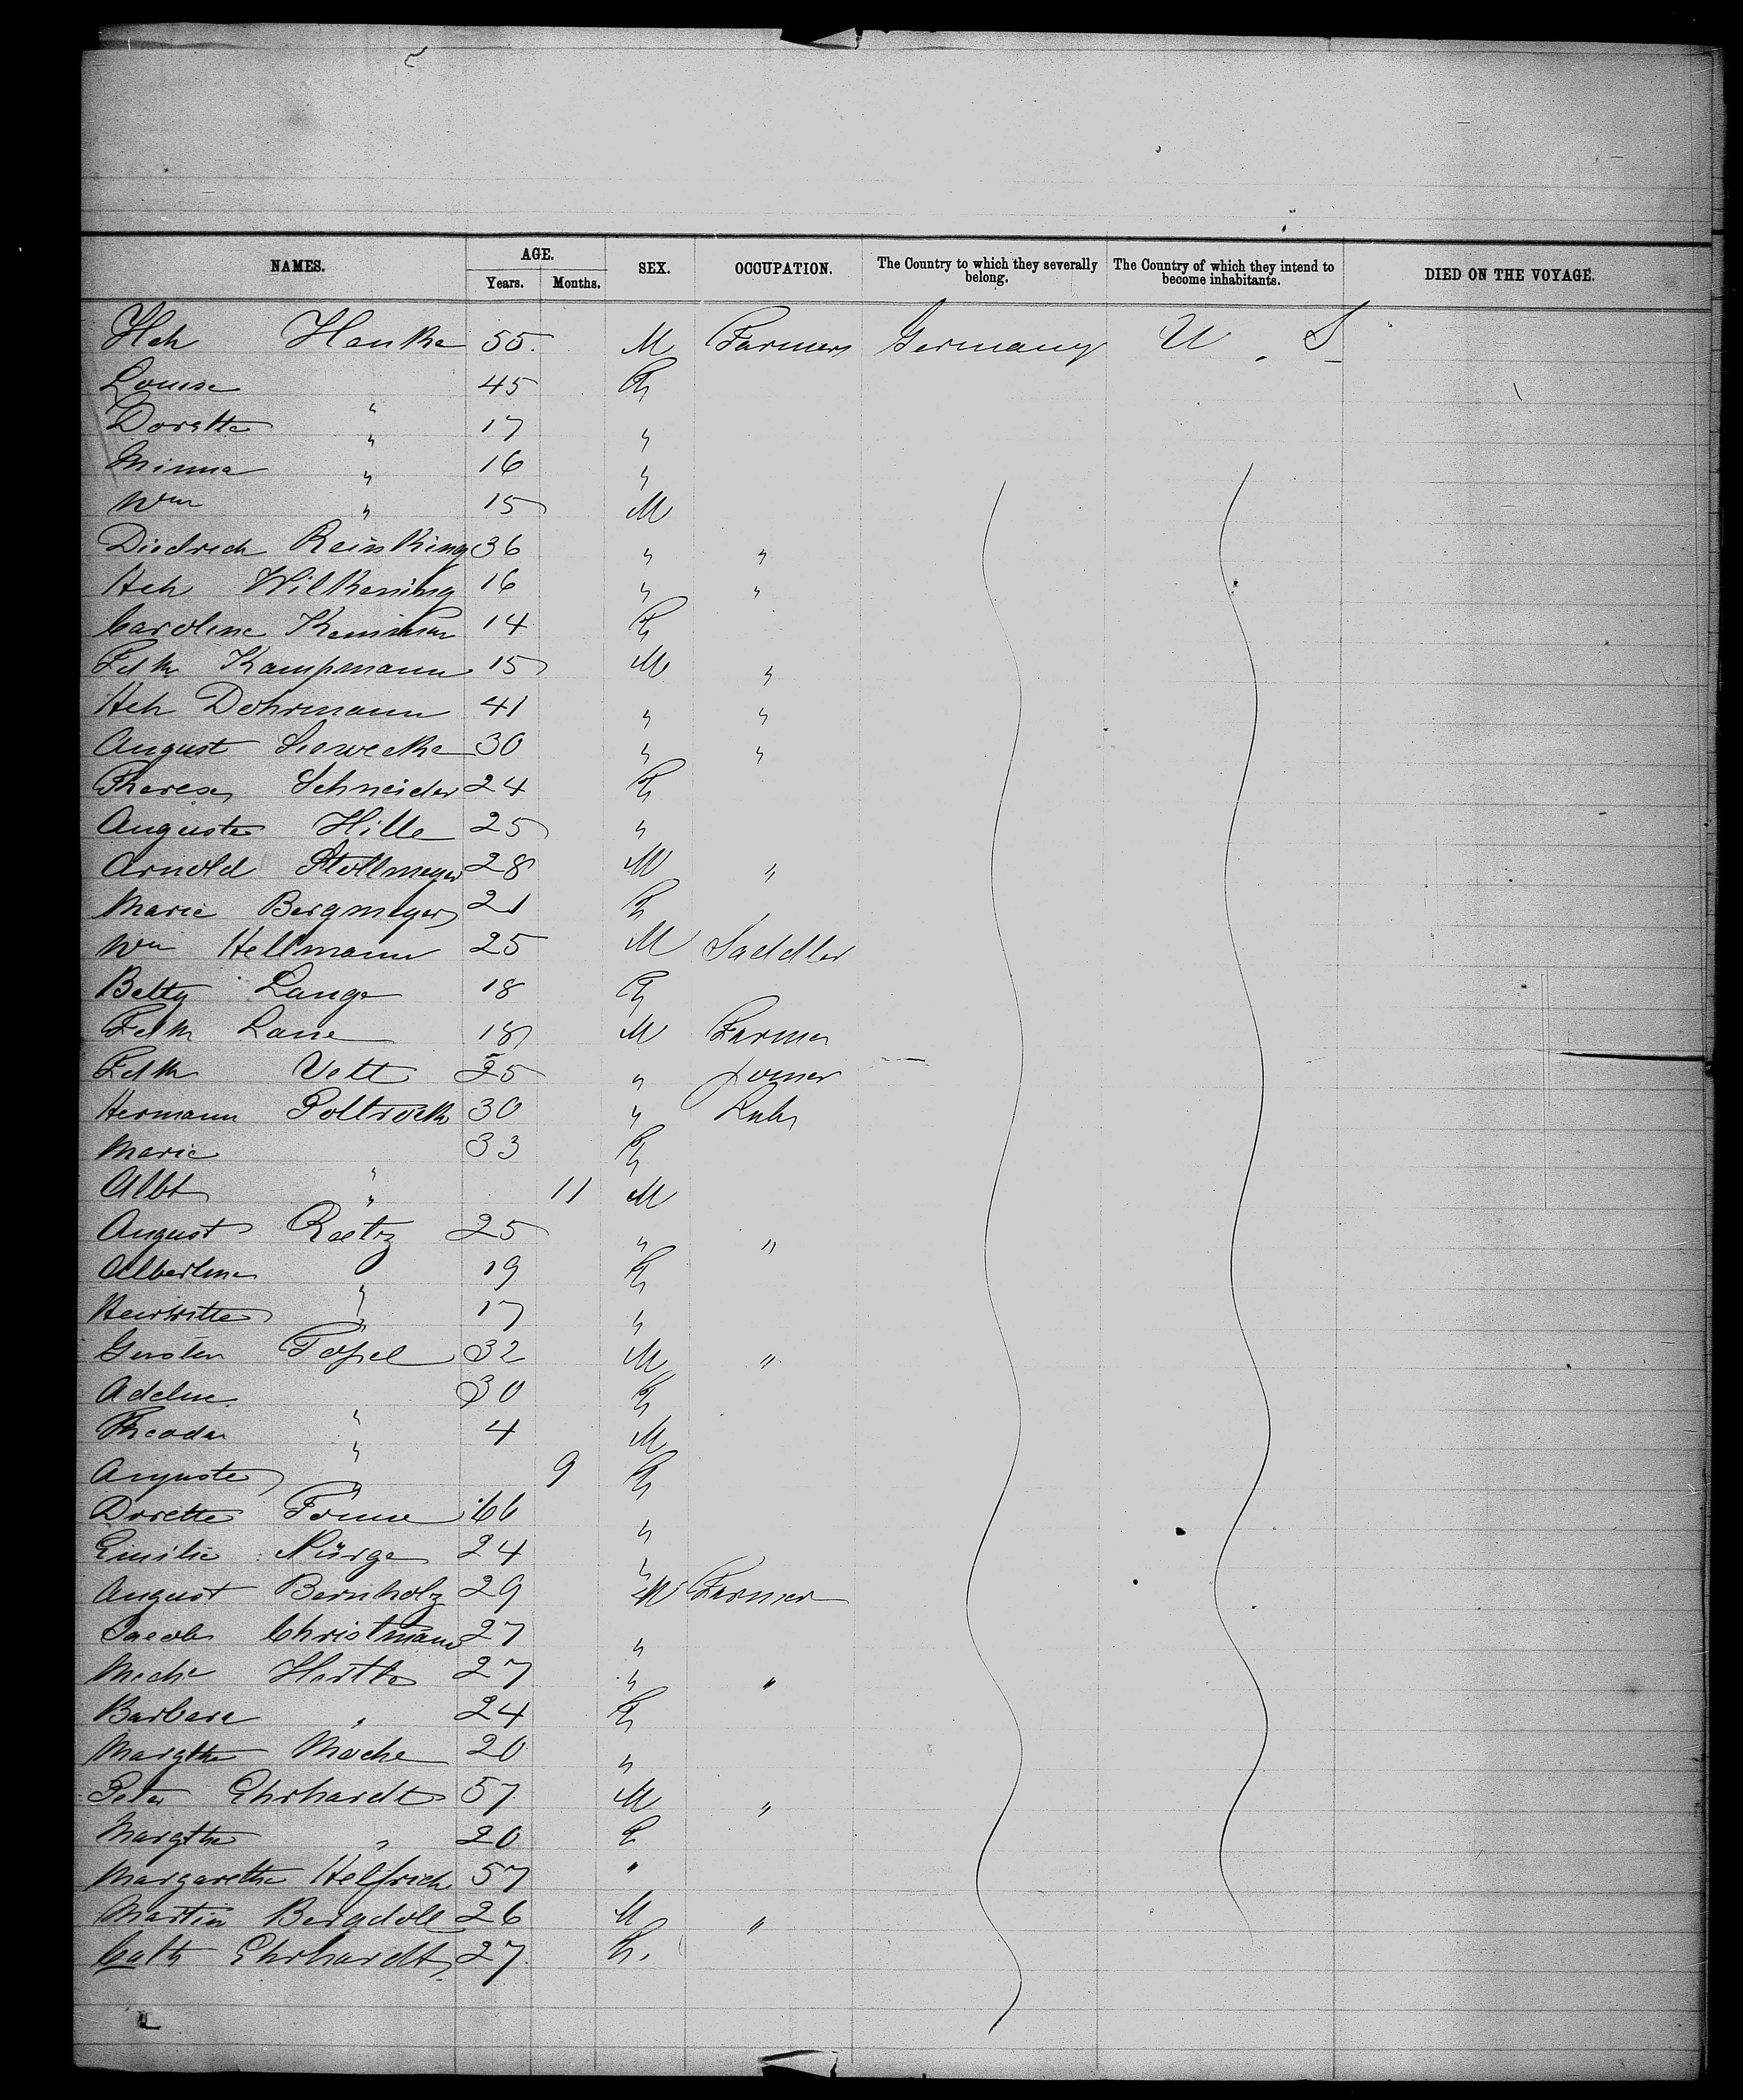 NAMES. AGE. SEX. OCCUPATION. The Country to which they severally belong. The Country of which they intend to become inhabitants. DIED ON THE VOYAGE.
Years. Months.
Hch Henke 55. M Farmers Germany U. S
Louise " 45 F
Dorette " 17 "
Minna " 16 "
Wm " 15 M
Diedrich Reinking 36 " "
Hch Wilkening 16 " "
Caroline 14 F
Fdk Kampmann 15 M "
Hch Dohrmann 41 " "
August 30 " "
Therese Schneider 24 F
Auguste Hille 25 "
Arnold Stollmeyer 28 M "
Marie Bergmeyer 21 F
Wm Hellmann 25 M Saddler
Betty Lange 18 F
Fdk 18 M Farmer
Fdk Vett 25 " Joiner
Hermann Poltrock 30 "
Marie " 33 F
Albt " 11 M
August Raetz 25 " "
Albertine " 19 F
Henriette " 17 "
32 M "
Adeline " 30 F
Theodor " 4 M
Auguste " 9 F
Dorette 66 "
Emilie Nürge 24 "
August Bernholz 29 M Farmer
Jacob Christmann 27 "
27 " "
Barbara " 24 F
Margthe 20 "
Peter Ehrhardt 57 M "
Margthe " 20 F
Margarethe Helfrich 57 "
Martin Bergdoll 26 M "
Cath Ehrhardt 27 F.